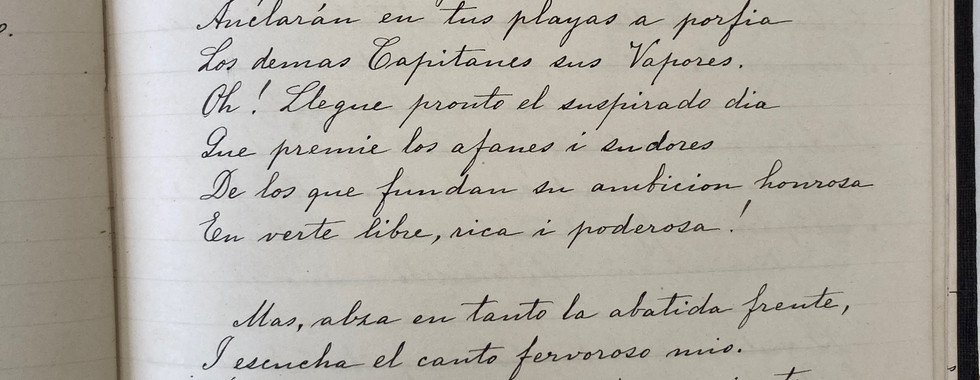 Anclarán en tus playas a porfia
Los demas Capitanes sus Vapores.
Oh! Llegue pronto el suspirado dia
Que premie los afanes i sudores
De los que fundan su ambicion honrosa
En verte libre, rica i poderosa!
Mas, alza en tanto la abatida frente,
I escucha el canto fervoroso mio.